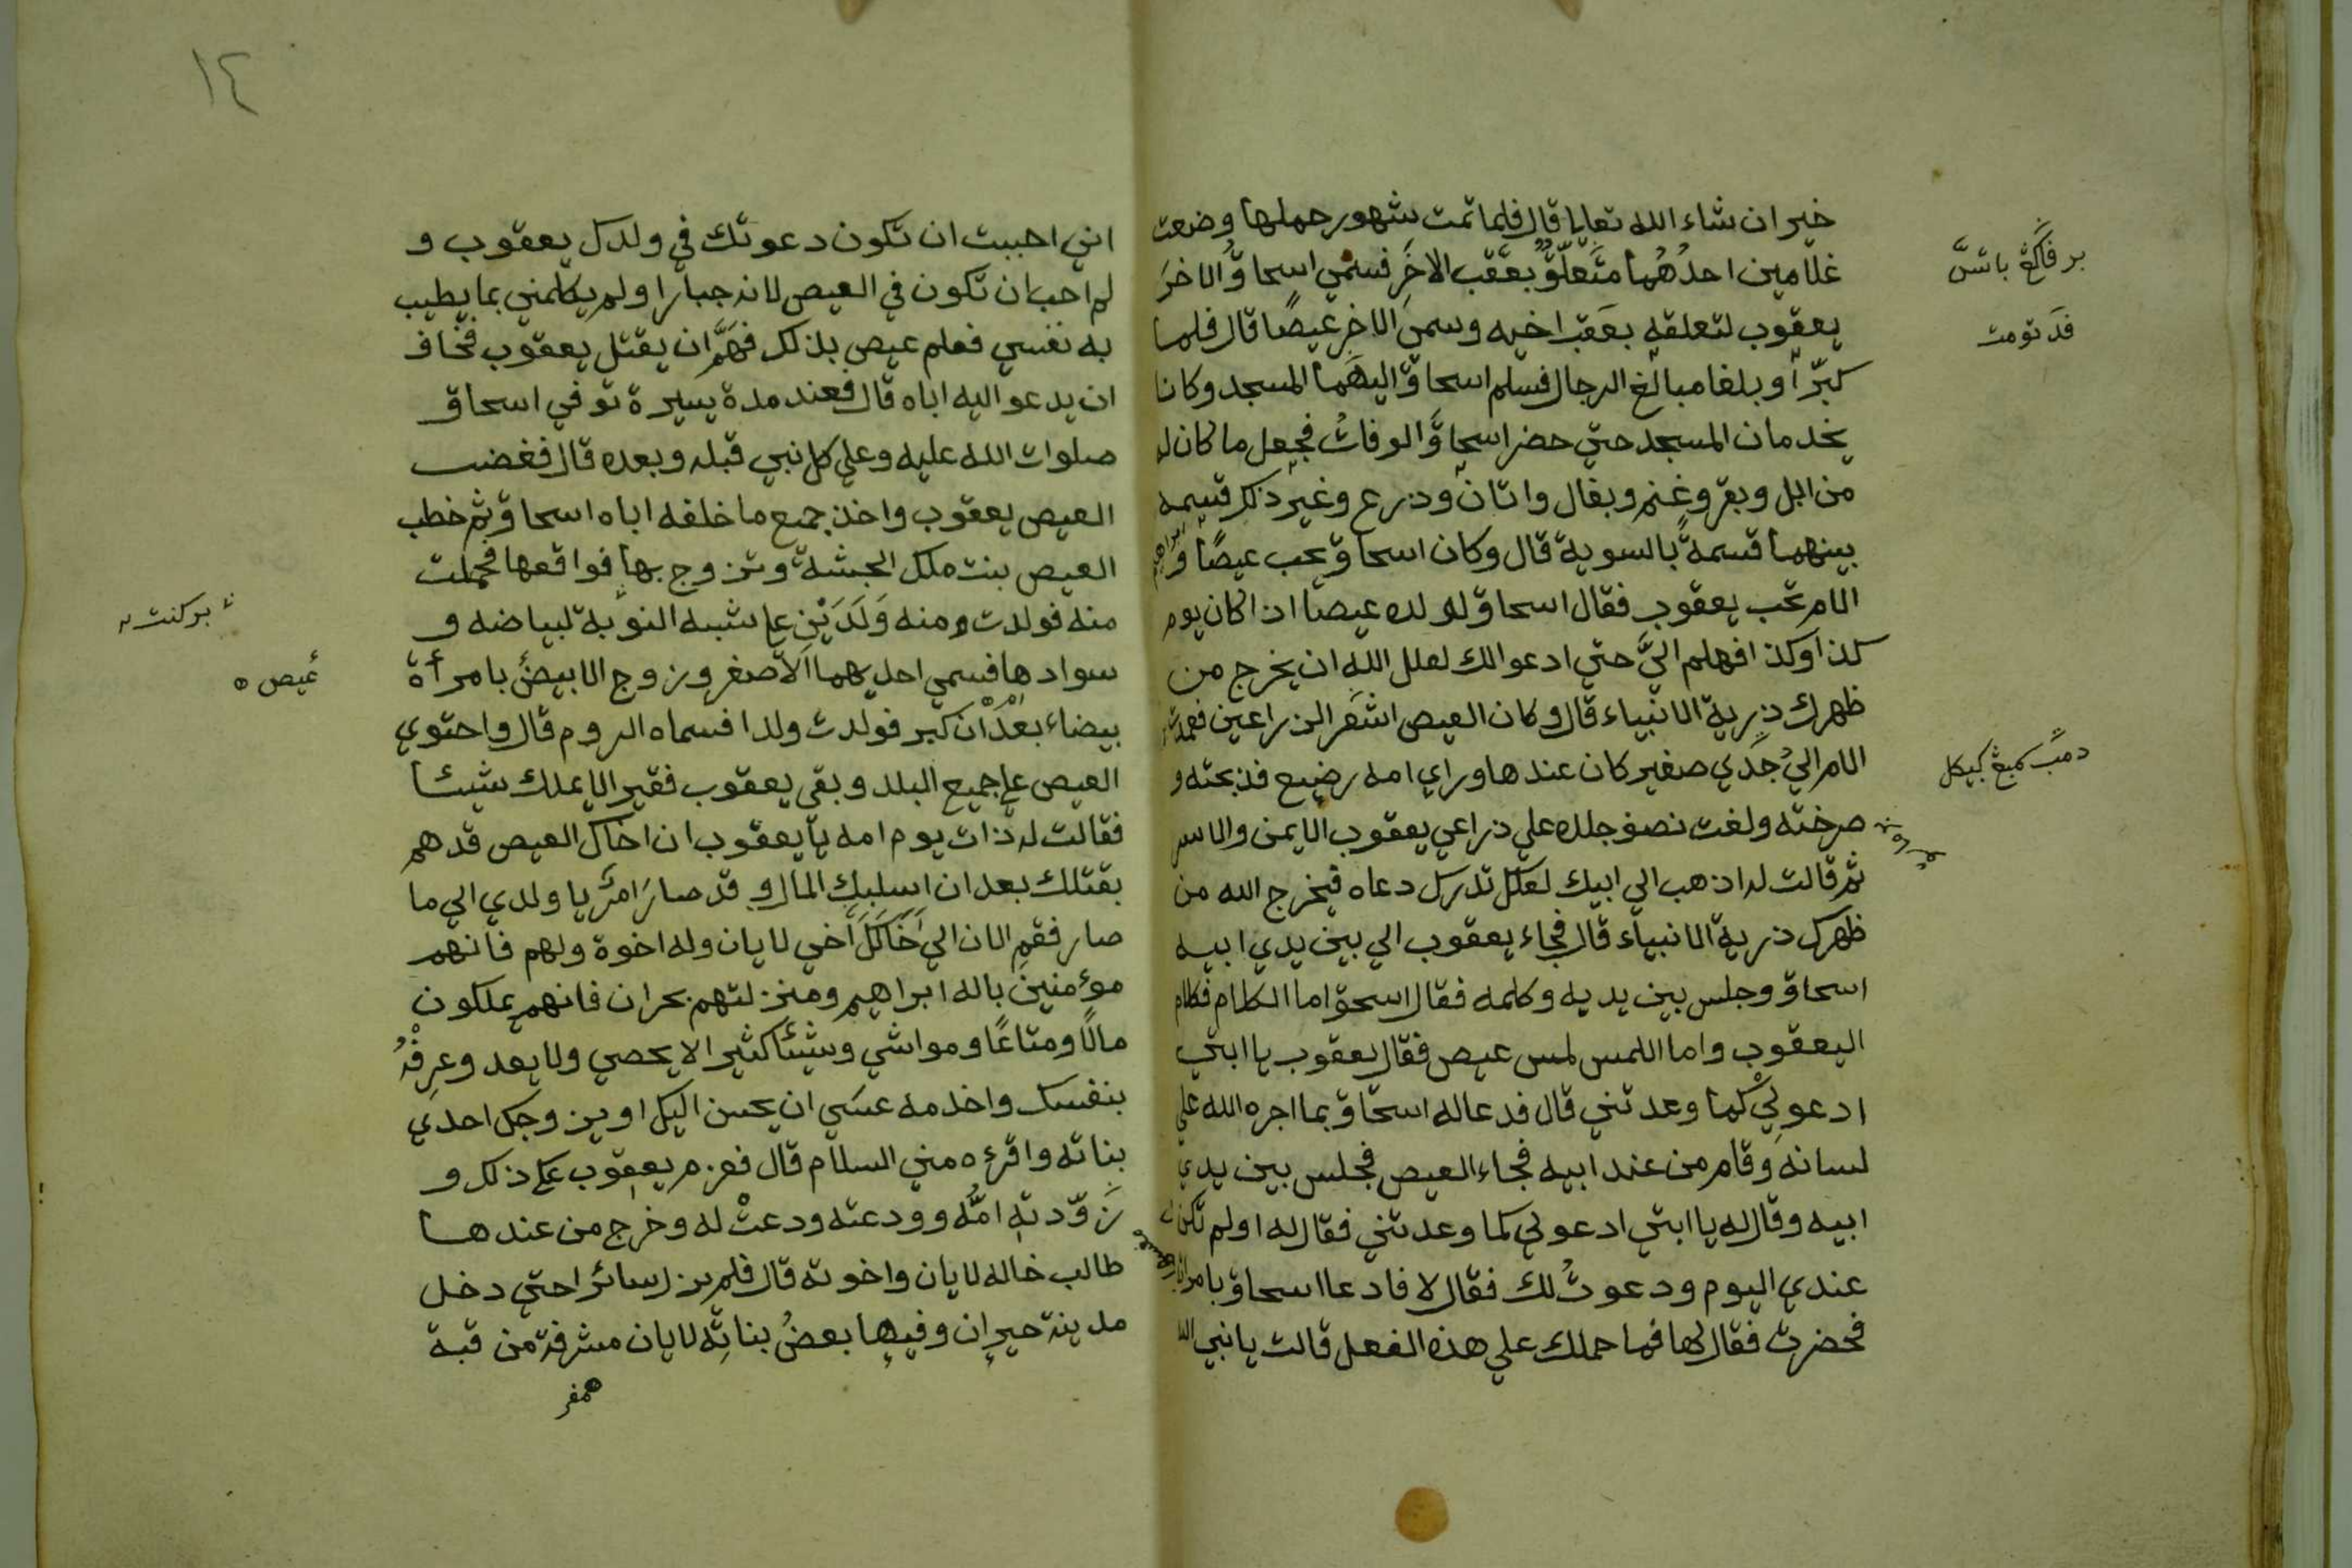 خير ان شاء الله تعالى قال فلما تمت شهور حملها وضعت
غلامين احدُهُما متعلّقٌ بعقب الاخَرِ فسمي اسحاقُ الاخرَ
يعقوب لتعلقه بعقب اخيه وسمى الاخر عيصًا قال فلما
كبرا وبلغا مبالغ الرجال فسلم اسحاق اليهما المسجد وكانا
يخدمان المسجد حتي حضر اسحاقَ الوفاتُ فجعل ما كان له
من ابل وبقر وغنم وبغال واتان وزرع وغير ذلك قسمه
بينهما قسمةً بالسوية قال وكان اسحاق يحب عيصًا و
الام تحب يعقوب فقال اسحاق لولده عيصا اذا كان يوم
كذا وكذا فهلم اليَّ حتي ادعوا لك لعل الله ان يخرج من
ظهرك ذرية الانبياء قال وكان العيص اشعر الذراعين فعمدت
الام الي جَدي صغير كان عندها وراي امه رضيع فذبحته و
صرخته ولفت نصف جلده علي ذراعي يعقوب الايمن والاسر
ثم قالت له اذهب الي ابيك لعلك تدرك دعاه فيخرج الله من
ظهرك ذرية الانبياء قال فجاء يعقوب الي بين يدي ابيه
اسحاق وجلس بين يديه وكلمه فقال اسحق اما الكلام فكلام
اليعقوب واما اللمس لمس عيص فقال يعقوب يا ابتي
ادعو لي كما وعدتني قال فدعا له اسحاق بما اجره الله علي
لسانه وقام من عند ابيه فجاء العيص فجلس بين يدي
ابيه وقال له يا ابتي ادعو لي كما وعدتني فقال له اولم تكن
عندي اليوم ودعوتُ لك فقال لا فادعا اسحاق بامراته
فحضرت فقال لها فما حملك علي هذه الفعل قالت يا نبي الله
بر فاكڠ باتس
فد تومت
دمب كمبڠ كبيكل
١٤
اني احببت ان تكون دعوتك في ولدك يعقوب و
لم احب ان تكون في العيص لانه جبارا ولم يكلمني بما يطيب
به نفسي فعلم عيص بذلك فهَمَّ ان يقتل يعقوب فخاف
ان يدعو اليه اباه قال فعند مدة يسيرة توفي اسحاق
صلوات الله عليه وعلي كل نبي قبله وبعده قال فغضب
العيص يعقوب واخذ جميع ما خلفه اباه اسحاق ثم خطب
العيص بنت ملك الحبشة وتزوج بها فواقعها فحملت
منه فولدت ومنه وَلَدَيْنِ علي شبه النوبة لبياضه و
سوادها فسمي احديهما الاصغر وزوج الابيضُ بامرأة
بيضاء بعد ان كبر فولدت ولدا فسماه الروم قال واحتوي
العيص علي جميع البلد وبقي يعقوب فقيرا لا يملك شيئا
فقالت له ذات يوم امه يا يعقوب ان اخاك العيص قد هم
بقتلك بعد ان اسلبك المال وقد صار امرُ يا ولدي الي ما
صار فقم الان الي خَالَكَ أخي لايان وله اخوة ولهم فانهم
مؤمنين باله ابراهيم ومنزلتهم بحران فانهم يملكون
مالًا ومتاعًا ومواشي وشيئا كثيرا لا يحصي ولا يعد وعرِفْهُ
بنفسك واخدمه عسَي ان يحسن اليك او يزوجك احدي
بناته واقرءه مني السلام قال فعزم يعقوب علي ذلك و
زَوّدته امُّه وودعته ودعتْ له وخرج من عندها
طالب خاله لايان واخوته قال فلم يزل سائرا حتي دخل
مدينة حيران وفيها بعضُ بناتِه لايان مشرفة من قبة
بركنت
عيص ه